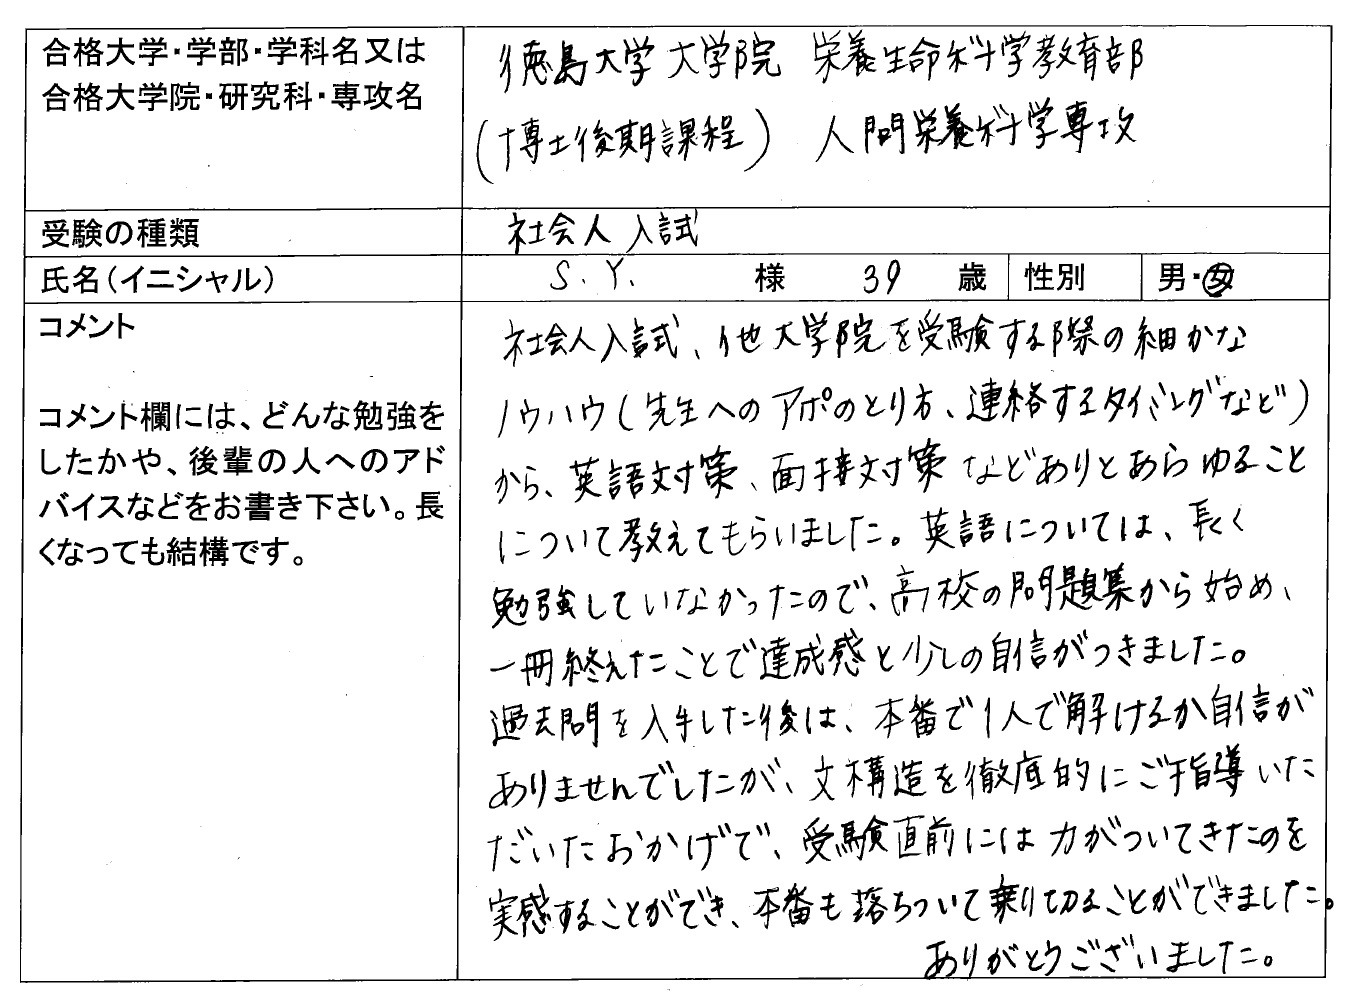 合格大学・学部・学科名又は
合格大学院・研究科・専攻名
徳島大学大学院 栄養生命科学教育部
(博士後期課程) 人間栄養科学専攻
受験の種類
社会人入試
氏名(イニシャル)
S.Y. 様 39 歳 性別 男・女
コメント
コメント欄には、どんな勉強を
したかや、後輩の人へのアド
バイスなどをお書き下さい。長
くなっても結構です。
社会人入試、他大学院を受験する際の細かな
ノウハウ(先生へのアポのとり方、連絡するタイミングなど)
から、英語対策、面接対策などありとあらゆること
について教えてもらいました。英語については、長く
勉強していなかったので、高校の問題集から始め、
一冊終えたことで達成感と少しの自信がつきました。
過去問を入手した後は、本番で1人で解けるか自信が
ありませんでしたが、文構造を徹底的にご指導いた
だいたおかげで、受験直前には力がついてきたのを
実感することができ、本番も落ちついて乗り切ることができました。
ありがとうございました。